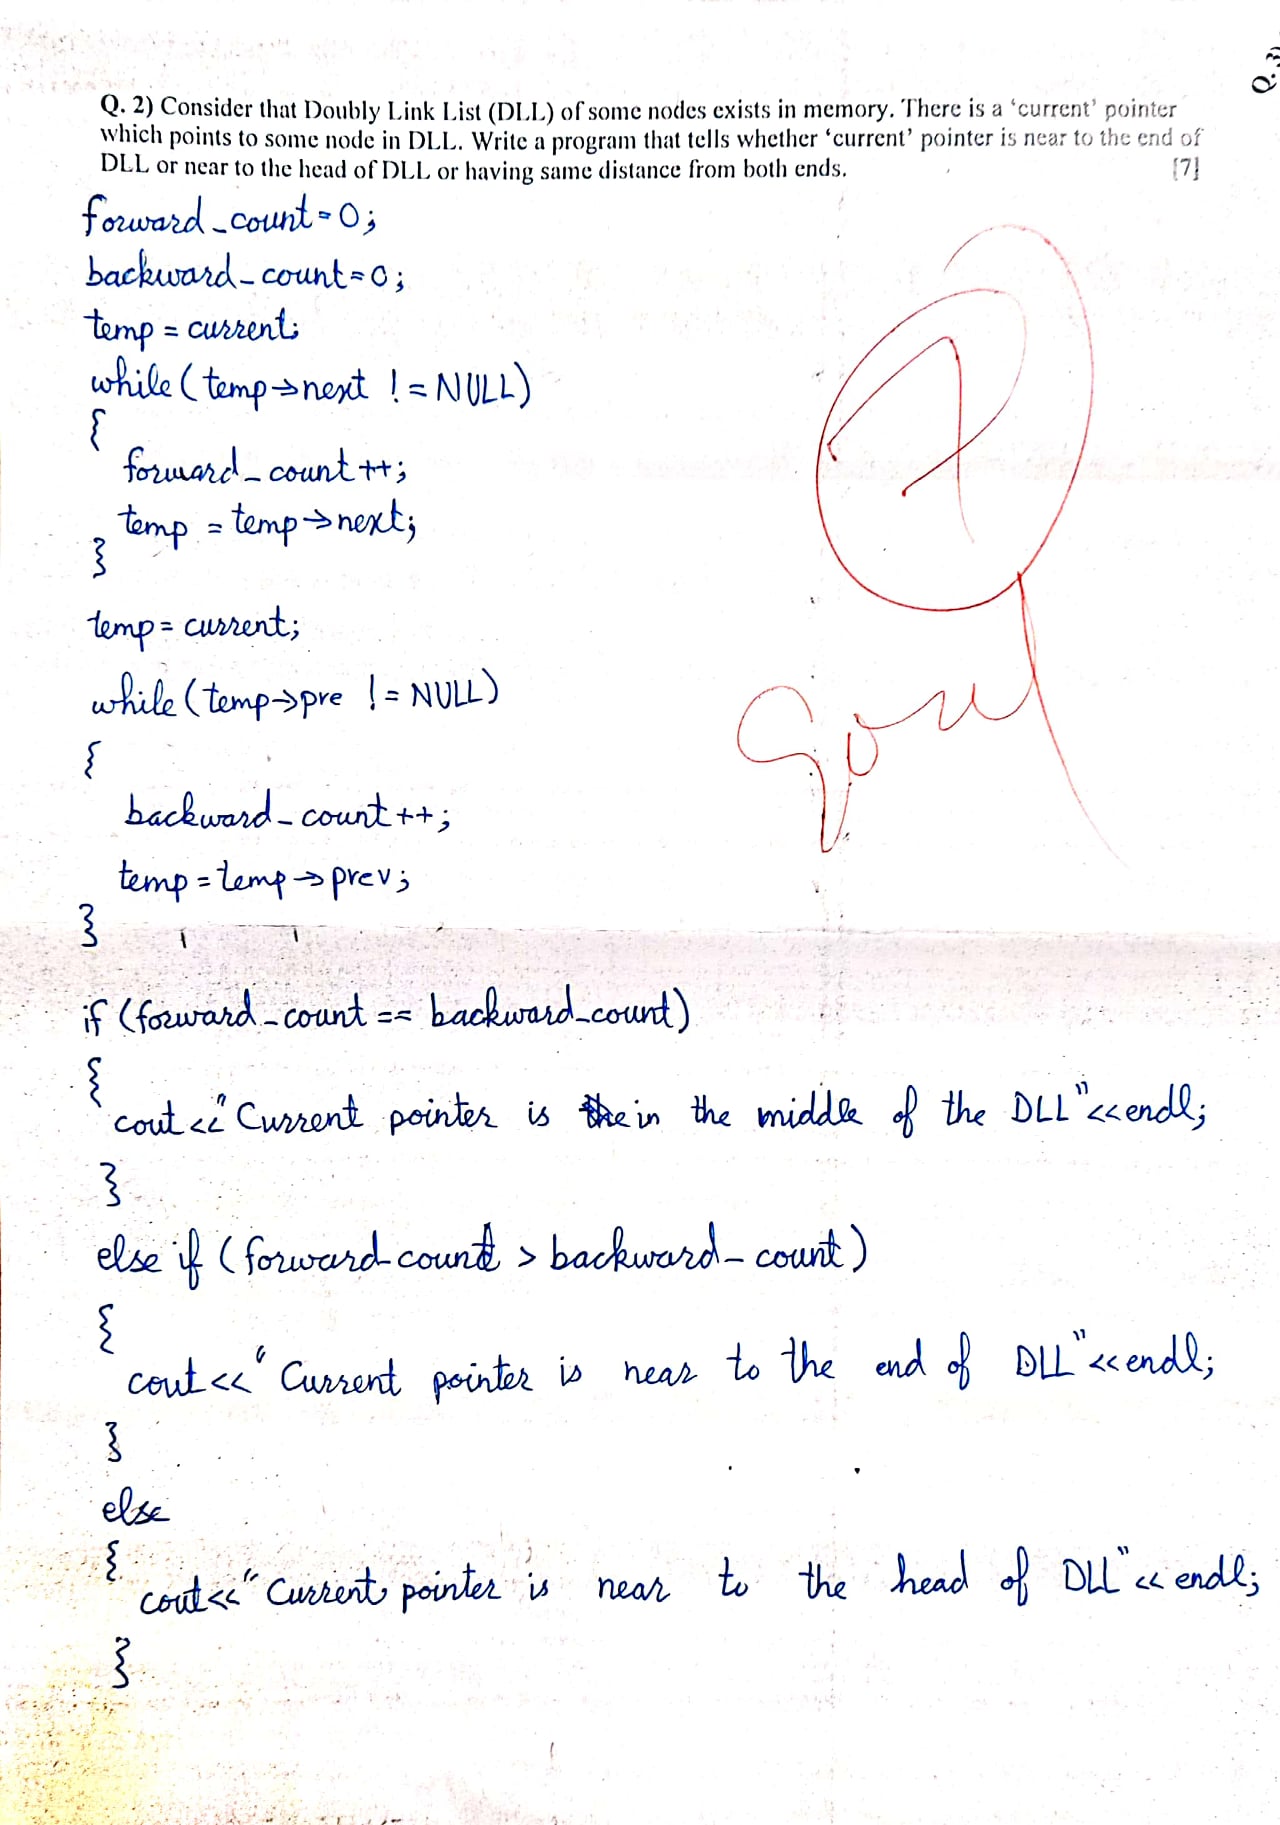 Q.3
Q. 2) Consider that Doubly Link List (DLL) of some nodes exists in memory. There is a ‘current’ pointer
which points to some node in DLL. Write a program that tells whether ‘current’ pointer is near to the end of
DLL or near to the head of DLL or having same distance from both ends. [7]
forward_count=0;
backward_count=0;
temp = current;
while(temp→next != NULL)
{
forward_count++;
temp = temp→next;
}
temp = current;
while(temp→pre != NULL)
{
backward_count++;
temp = temp→prev;
}
if (forward_count == backward_count)
{
cout<<"Current pointer is in the middle of the DLL"<<endl;
}
else if (forward_count > backward_count)
{
cout<<"Current pointer is near to the end of DLL"<<endl;
}
else
{
cout<<"Current pointer is near to the head of DLL"<<endl;
}
7